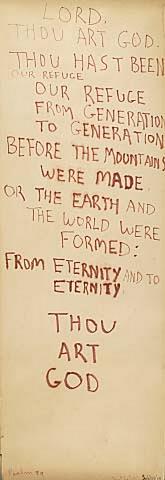 LORD.
THOU ART GOD.
THOU HAST BEEN
OUR REFUGE
OUR REFUGE
FROM GENERATION
TO GENERATION
BEFORE THE MOUNTAINS
WERE MADE
OR THE EARTH AND
THE WORLD WERE
FORMED:
FROM ETERNITY AND TO
ETERNITY
THOU
ART
GOD
Psalm 89